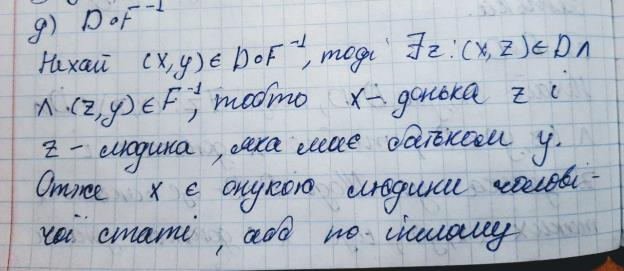 д) D∘F⁻¹
Нехай (x,y) ∈ D∘F⁻¹, тоді ∃z: (x,z) ∈ D ∧
∧ (z,y) ∈ F⁻¹, тобто x – донька z і
z – людина, яка має батьком y.
Отже x є онукою людини чолові-
чої статі, або по іншому